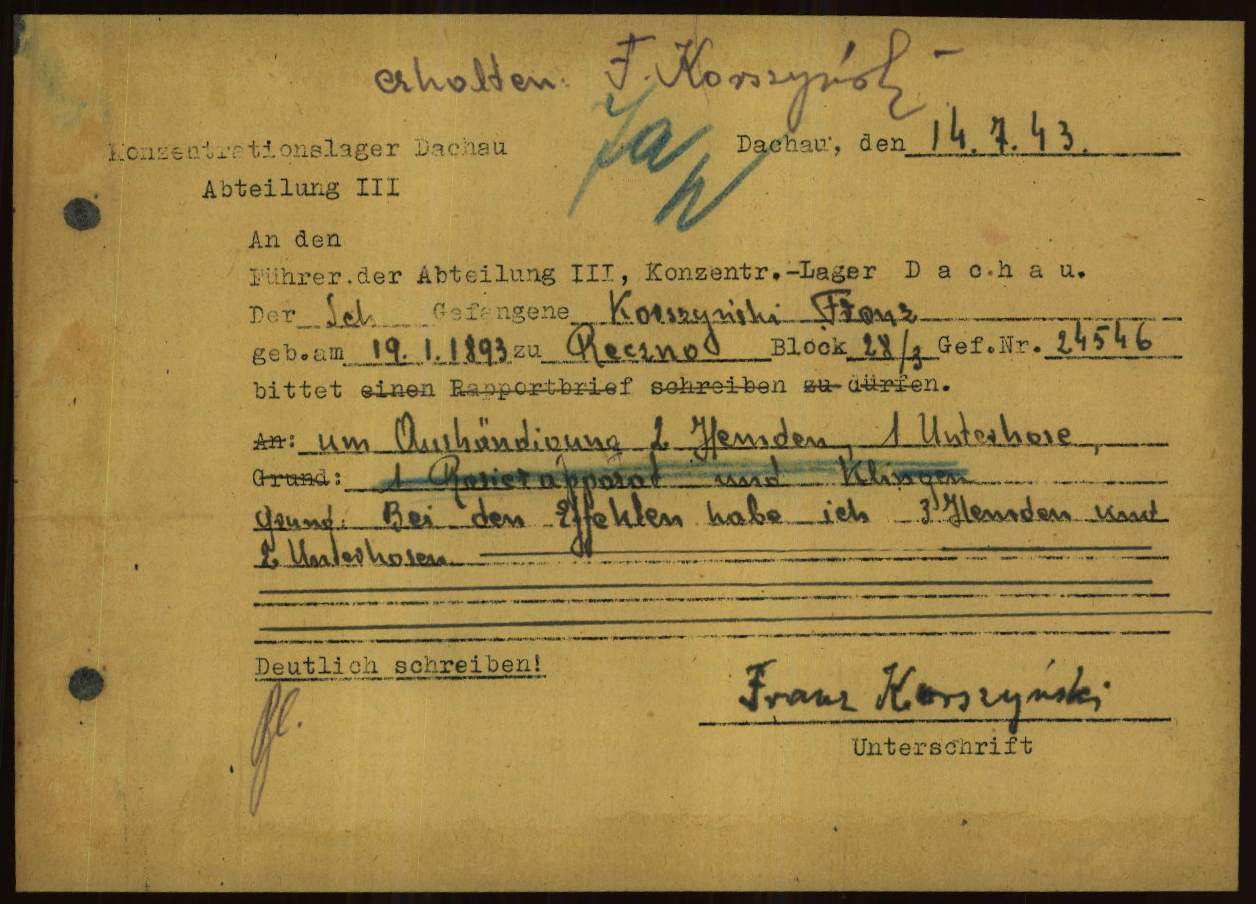 erhalten: F. Korszyński
Ja
Konzentrationslager Dachau
Dachau, den 14. 7. 43.
Abteilung III
An den
Führer.der Abteilung III, Konzentr.-Lager D a c h a u.
Der Sch Gefangene Korszyński Franz
geb.am 19. 1. 1893 zu Ręczno Block 28/3 Gef.Nr. 24546
bittet einen Rapportbrief schreiben zu dürfen.
An: um Aushändigung 2 Hemden, 1 Unterhose,
Grund: 1 Rasierapparat und Klingen
Grund: Bei den Effekten habe ich 3 Hemden und
2 Unterhosen
Deutlich schreiben!
Franz Korszyński
Unterschrift